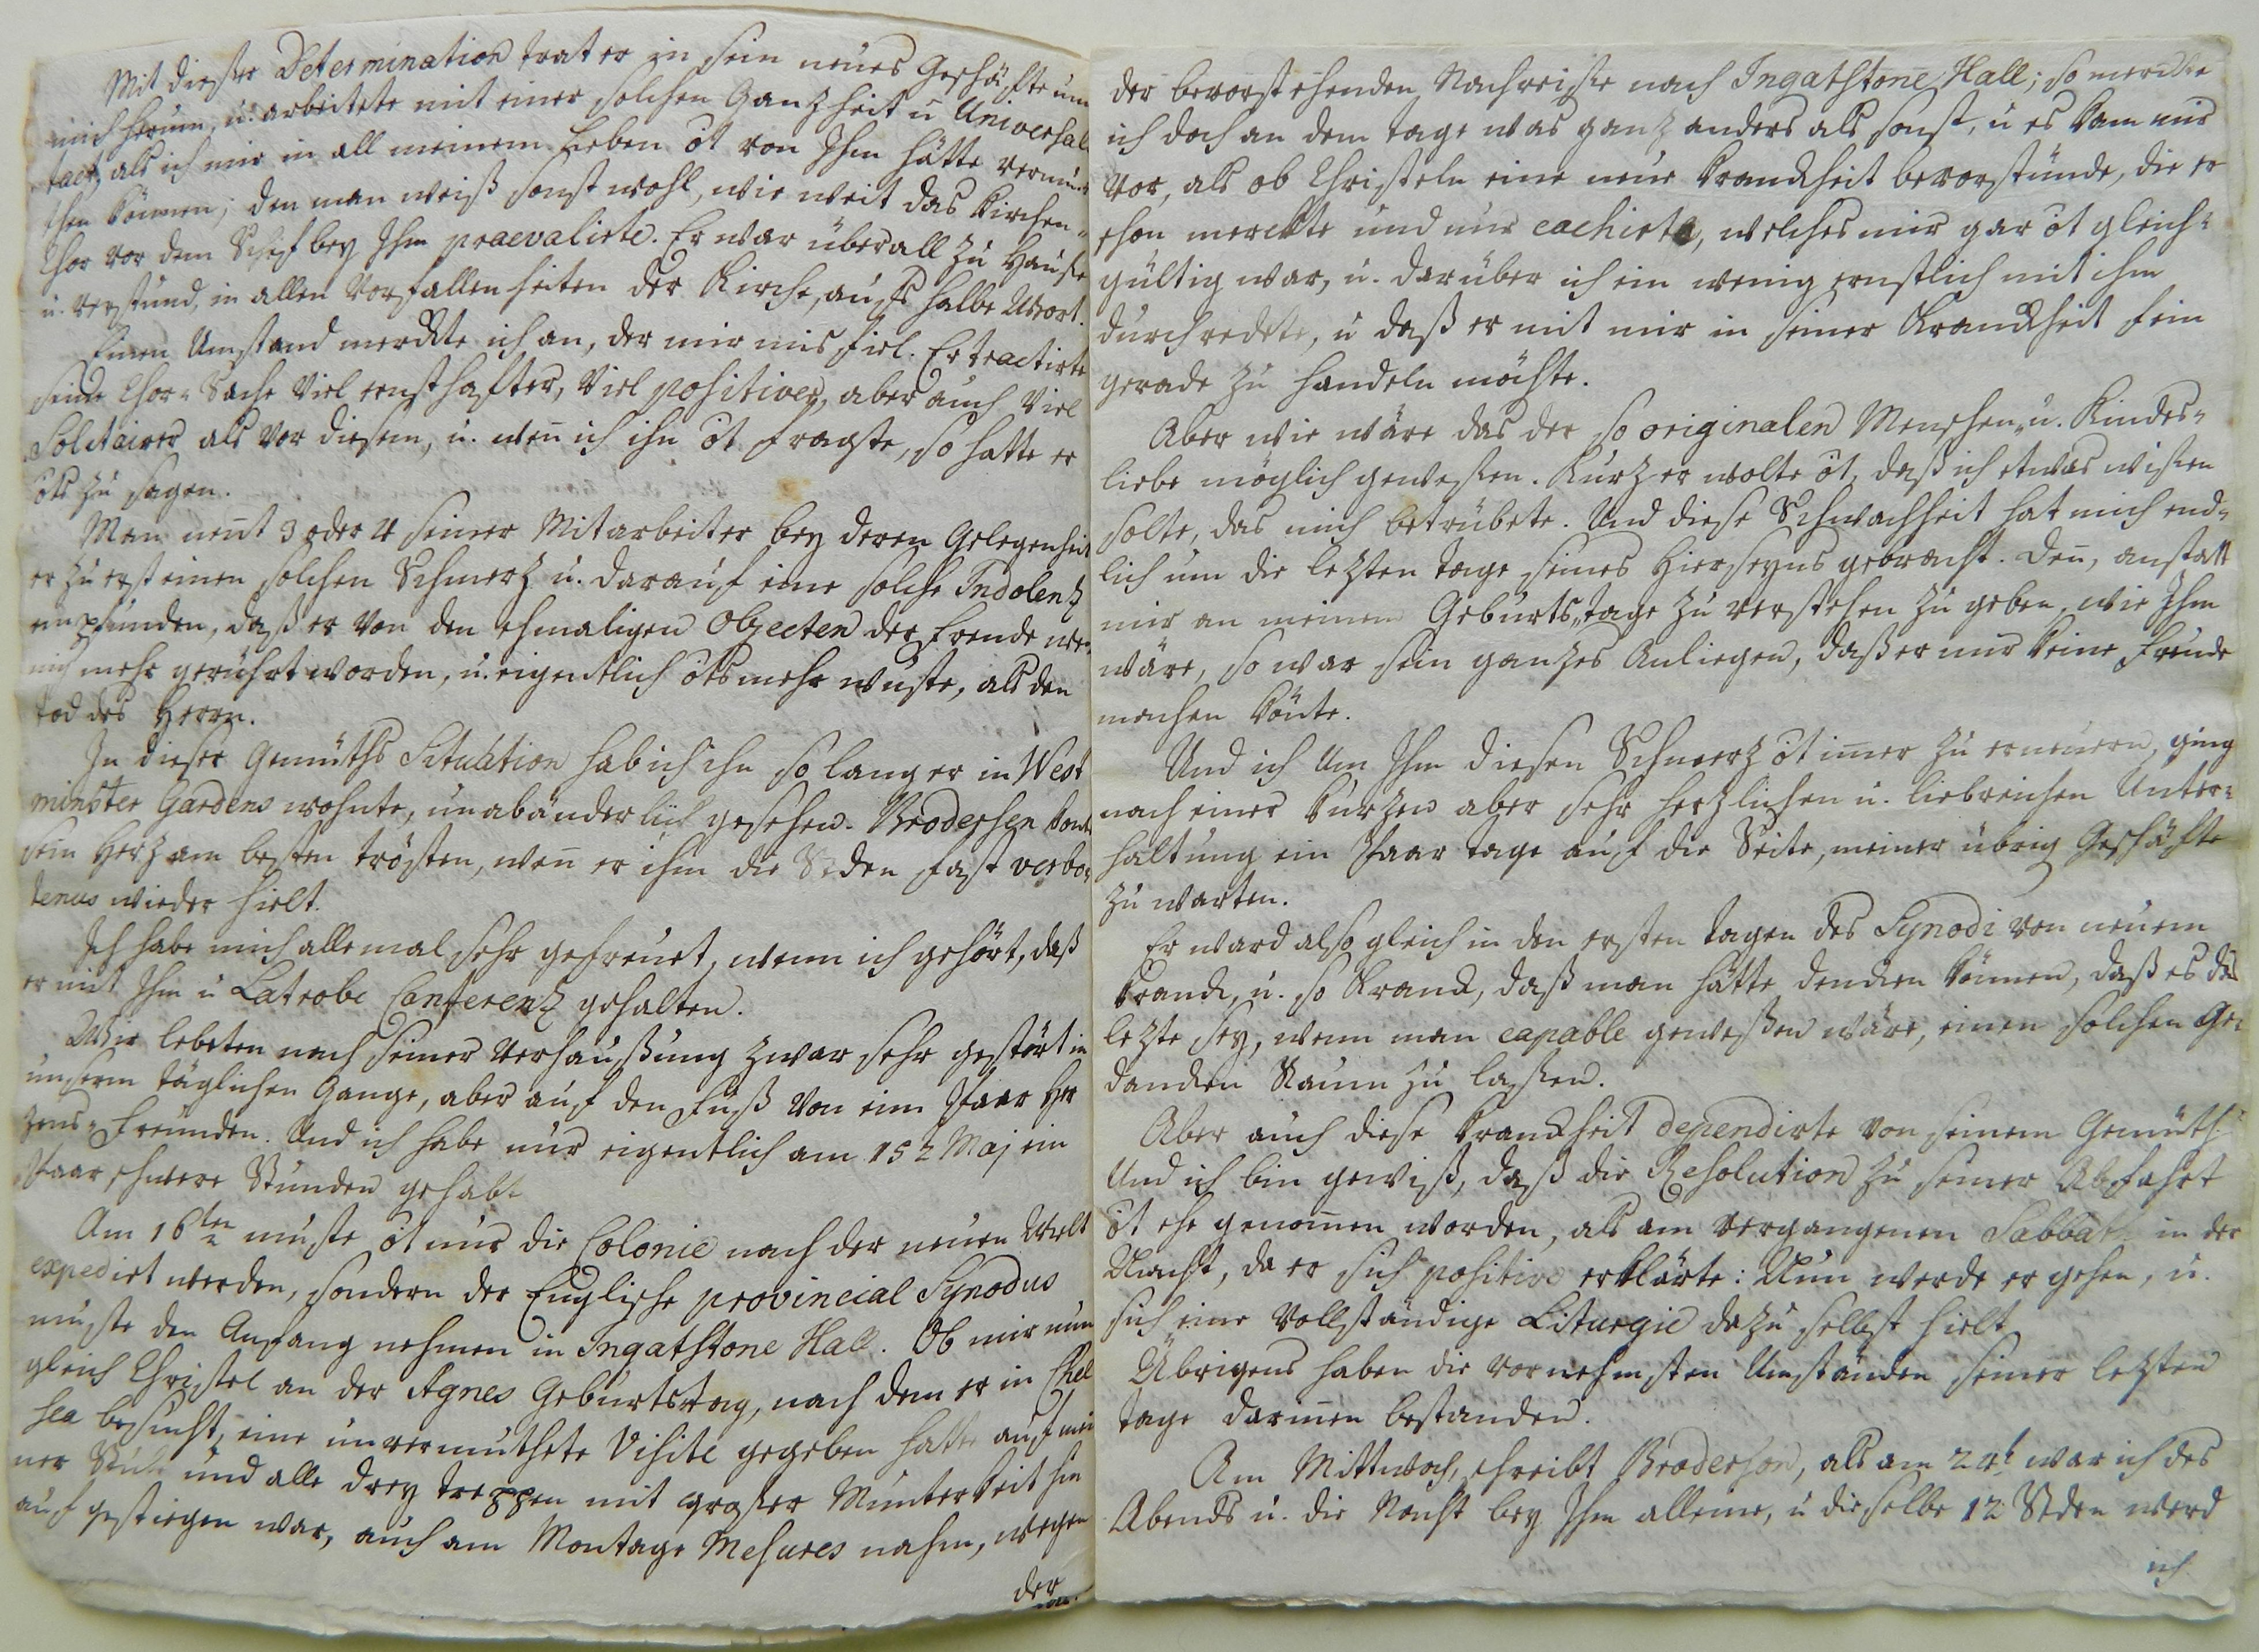 Mit dießer Determination trat er in sein neues Geschäfte um
mich herum, u. arbeitete mit einer solchen Ganzheit u Universal
tact, als ich mir in all meinem Leben öt von Ihm hätte vermu
then können; den man weiß sonst wohl, wie weit das Kirchen-
Chor vor dem Schif bey Ihm praevalirte. Er war überall zu Hauße
u. verstund, in allen Vorfallenheiten der Kirche, aufs halbe Wort.
Einen Umstand merckte ich an, der mir mis fiel. Er tractirte
seine Chor-Sache viel ernsthafter, viel positiver, aber auch viel
Solitairer als vor diesem, u. wen̄ ich ihn öt fragte, so hatte er
öts zu sagen.
Man nen̄t 3 oder 4 seiner Mitarbeiter bey deren Gelegenheit
er zu erst einen solchen Schmerz u. darauf eine solche Indolenz
empfunden, daß er von den ehmaligen Objecten der Freude we-
nig mehr gerührt worden, u. eigentlich öts mehr wuste, als den
Tod des Herrn.
In dieser Gemüths Situation hab ich ihn so lang er in West
minster Gardens wohnte, unabänderlich gesehen. Brodersen konte
sein Herz am besten trösten, wen̄ er ihm die Reden fast verbo-
tenus wieder hielt.
Ich habe mich allemal sehr gefreuet, wenn ich gehört, daß
er mit Ihm u Latrobe Conferenz gehalten.
Wir lebeten nach seiner Verhaußung zwar sehr gestört in
unserm täglichen Gange, aber auf den Fuß von ein Paar Her
zens-Freunden. Und ich habe nur eigentlich am 15t Maj ein
Paar schwere Stunden gehabt
Am 16ten muste öt nur die Colonie nach der neuen Welt
expedirt werden, sondern der Englische provincial Synodus
muste den Anfang nehmen in Ingatstone Hall. Ob mir nun
gleich Christel an der Agnes Geburtstag, nach dem er in Chel
sea besucht, eine unvermuthete Visite gegeben hatte auf mei
ner Stube und alle drey Treppen mit großer Munterkeit hin
auf gestiegen war, auch am Montage Mesures nahm, wegen
der
der bevorstehenden Nachreiße nach Ingatstone Hall; so merckte
ich doch an dem Tage was ganz anders als sonst, u es kam mir
vor, als ob Christeln eine neue Kranckheit bevorstünde, die er
schon merckte und nur cachirte, welches mir gar öt gleich-
gültig war, u. darüber ich ein wenig ernstlich mit ihm
durchredete, u daß er mit mir in seiner Kranckheit fein
gerade zu handeln möchte.
Aber wie wäre das der so originalen Menschen- u. Kindes-
liebe möglich geweßen. Kurz er wolte öt, daß ich etwas wißen
solte, das mich betrübete. Und diese Schwachheit hat mich end-
lich um die lezten Tage seines Hierseyns gebracht. Den̄, anstatt
mir an meinem Geburts-tage zu verstehen zu geben, wie Ihm
wäre, so war sein ganzes Anliegen, daß er mir keine Freude
machen kön̄te.
Und ich um Ihm diesen Schmerz öt im̄er zu erneuern, ging
nach einer kurzen aber sehr herzlichen u. liebreichen Unter-
haltung ein Paar Tage auf die Seite, meiner übrig Geschäfte
zu warten.
Er ward also gleich in den ersten Tagen des Synodi von neuem
kranck, u. so kranck, daß man hätte dencken können, daß es das
lezte sey, wenn man capable geweßen wäre, einen solchen Ge-
dancken Raum zu laßen.
Aber auch diese Kranckheit dependirte von seinem Gemüth.
Und ich bin gewiß, daß die Resolution zu seiner Abfahrt
öt ehe genom̄en worden, als am vergangenen Sabbath in der
Nacht, da er sich positive erklärte: Nun werde er gehen, u.
sich eine vollständige Liturgie dazu selbst hielt
Übrigens haben die vornehmsten Umständen seiner lezten
Tage darinnen bestanden.
Am Mittwoch, schreibt Broderson, als am 24t war ich des
Abends u. die Nacht bey Ihm alleine, u dieselbe 12 Stden werd
ich